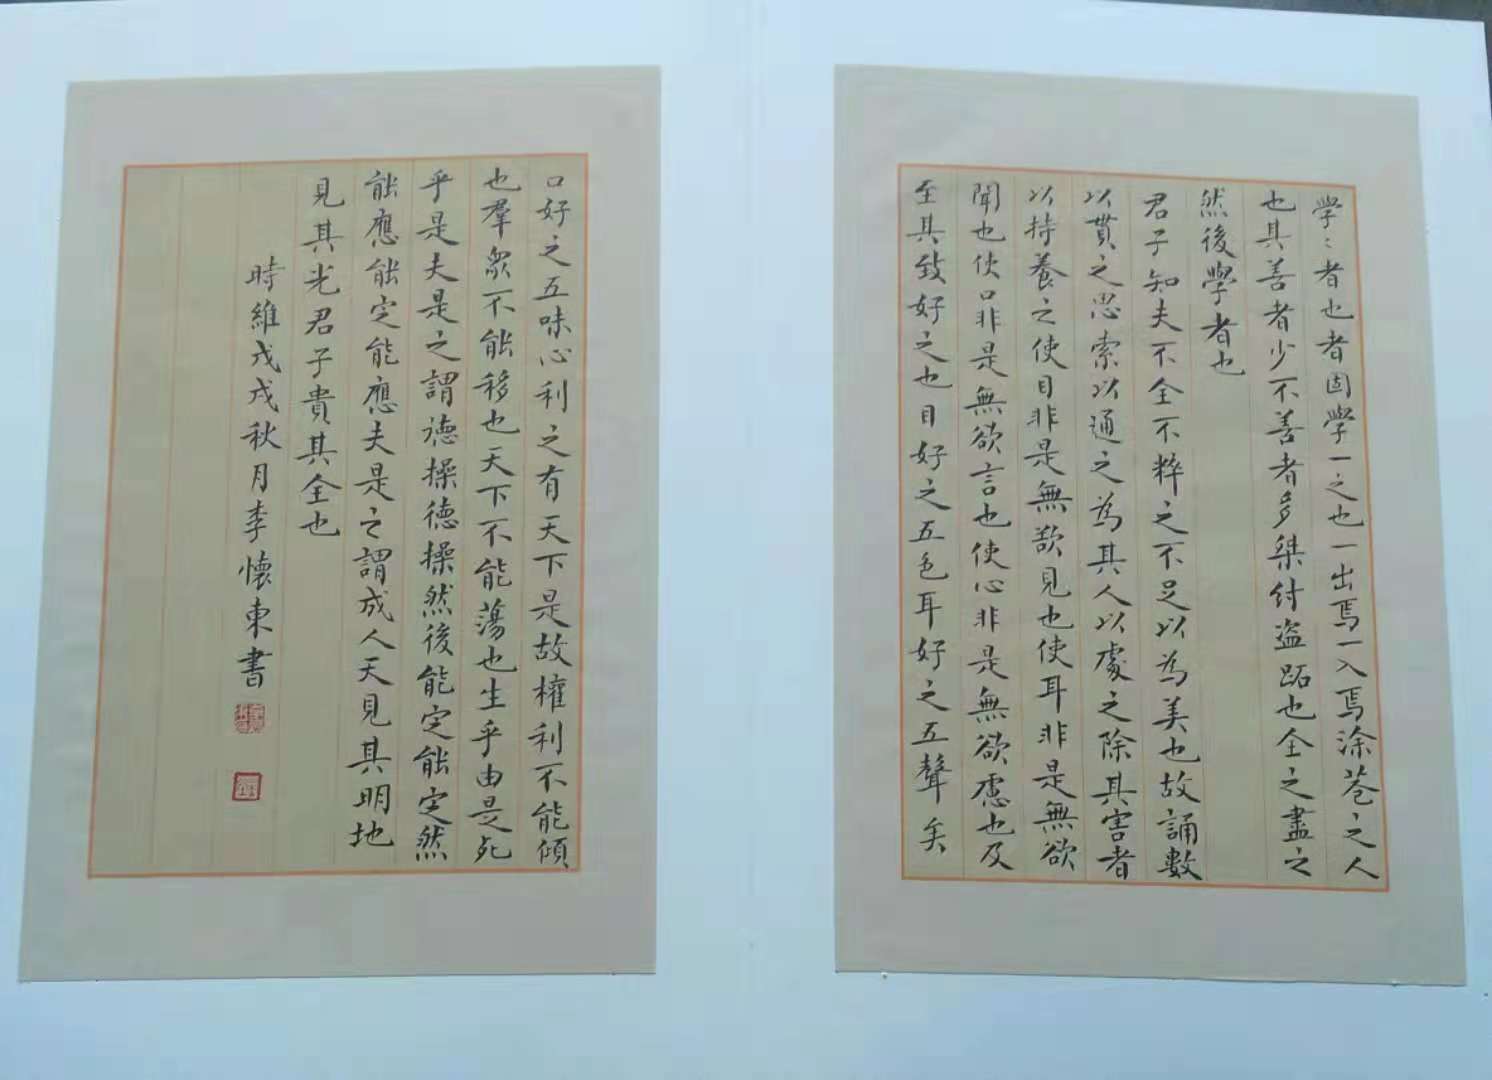 学〻者也者固学一之也一出焉一入焉涂巷之人
也其善者少不善者多桀纣盗跖也全之盡之
然後學者也
君子知夫不全不粹之不足以為美也故誦數
以貫之思索以通之為其人以處之除其害者
以持養之使目非是無欲見也使耳非是無欲
聞也使口非是無欲言也使心非是無欲慮也及
至其致好之也目好之五色耳好之五聲矣
口好之五味心利之有天下是故權利不能傾
也羣眾不能移也天下不能蕩也生乎由是死
乎是夫是之謂德操德操然後能定能定然
能應能定能應夫是之謂成人天見其明地
見其光君子貴其全也
時維戊戌秋月李懷東書